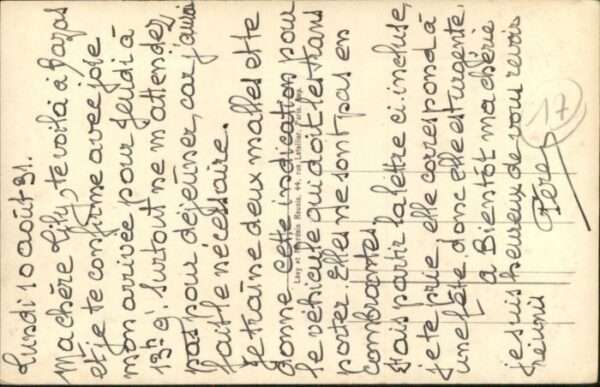 Lundi 10 août 31.
Ma chère Lily, te voilà à Gazas
et je te confirme avec joie
mon arrivée pour Jeudi à
13h 9'. Surtout ne m'attendez
pas pour déjeuner, car j'aurai
fait le nécessaire.
Je traîne deux malles et te
donne cette indication pour
le véhicule qui doit les trans
porter. Elles ne sont pas en
combrantes
Fais partir la lettre ci-incluse,
je te prie, elle correspond à
une fête, donc elle est urgente.
à Bientôt ma chérie
je suis heureux de vous revoir
réunis
Père
17
Lévy et Neurdein Réunis, 44, rue Letellier, Paris. Imp.